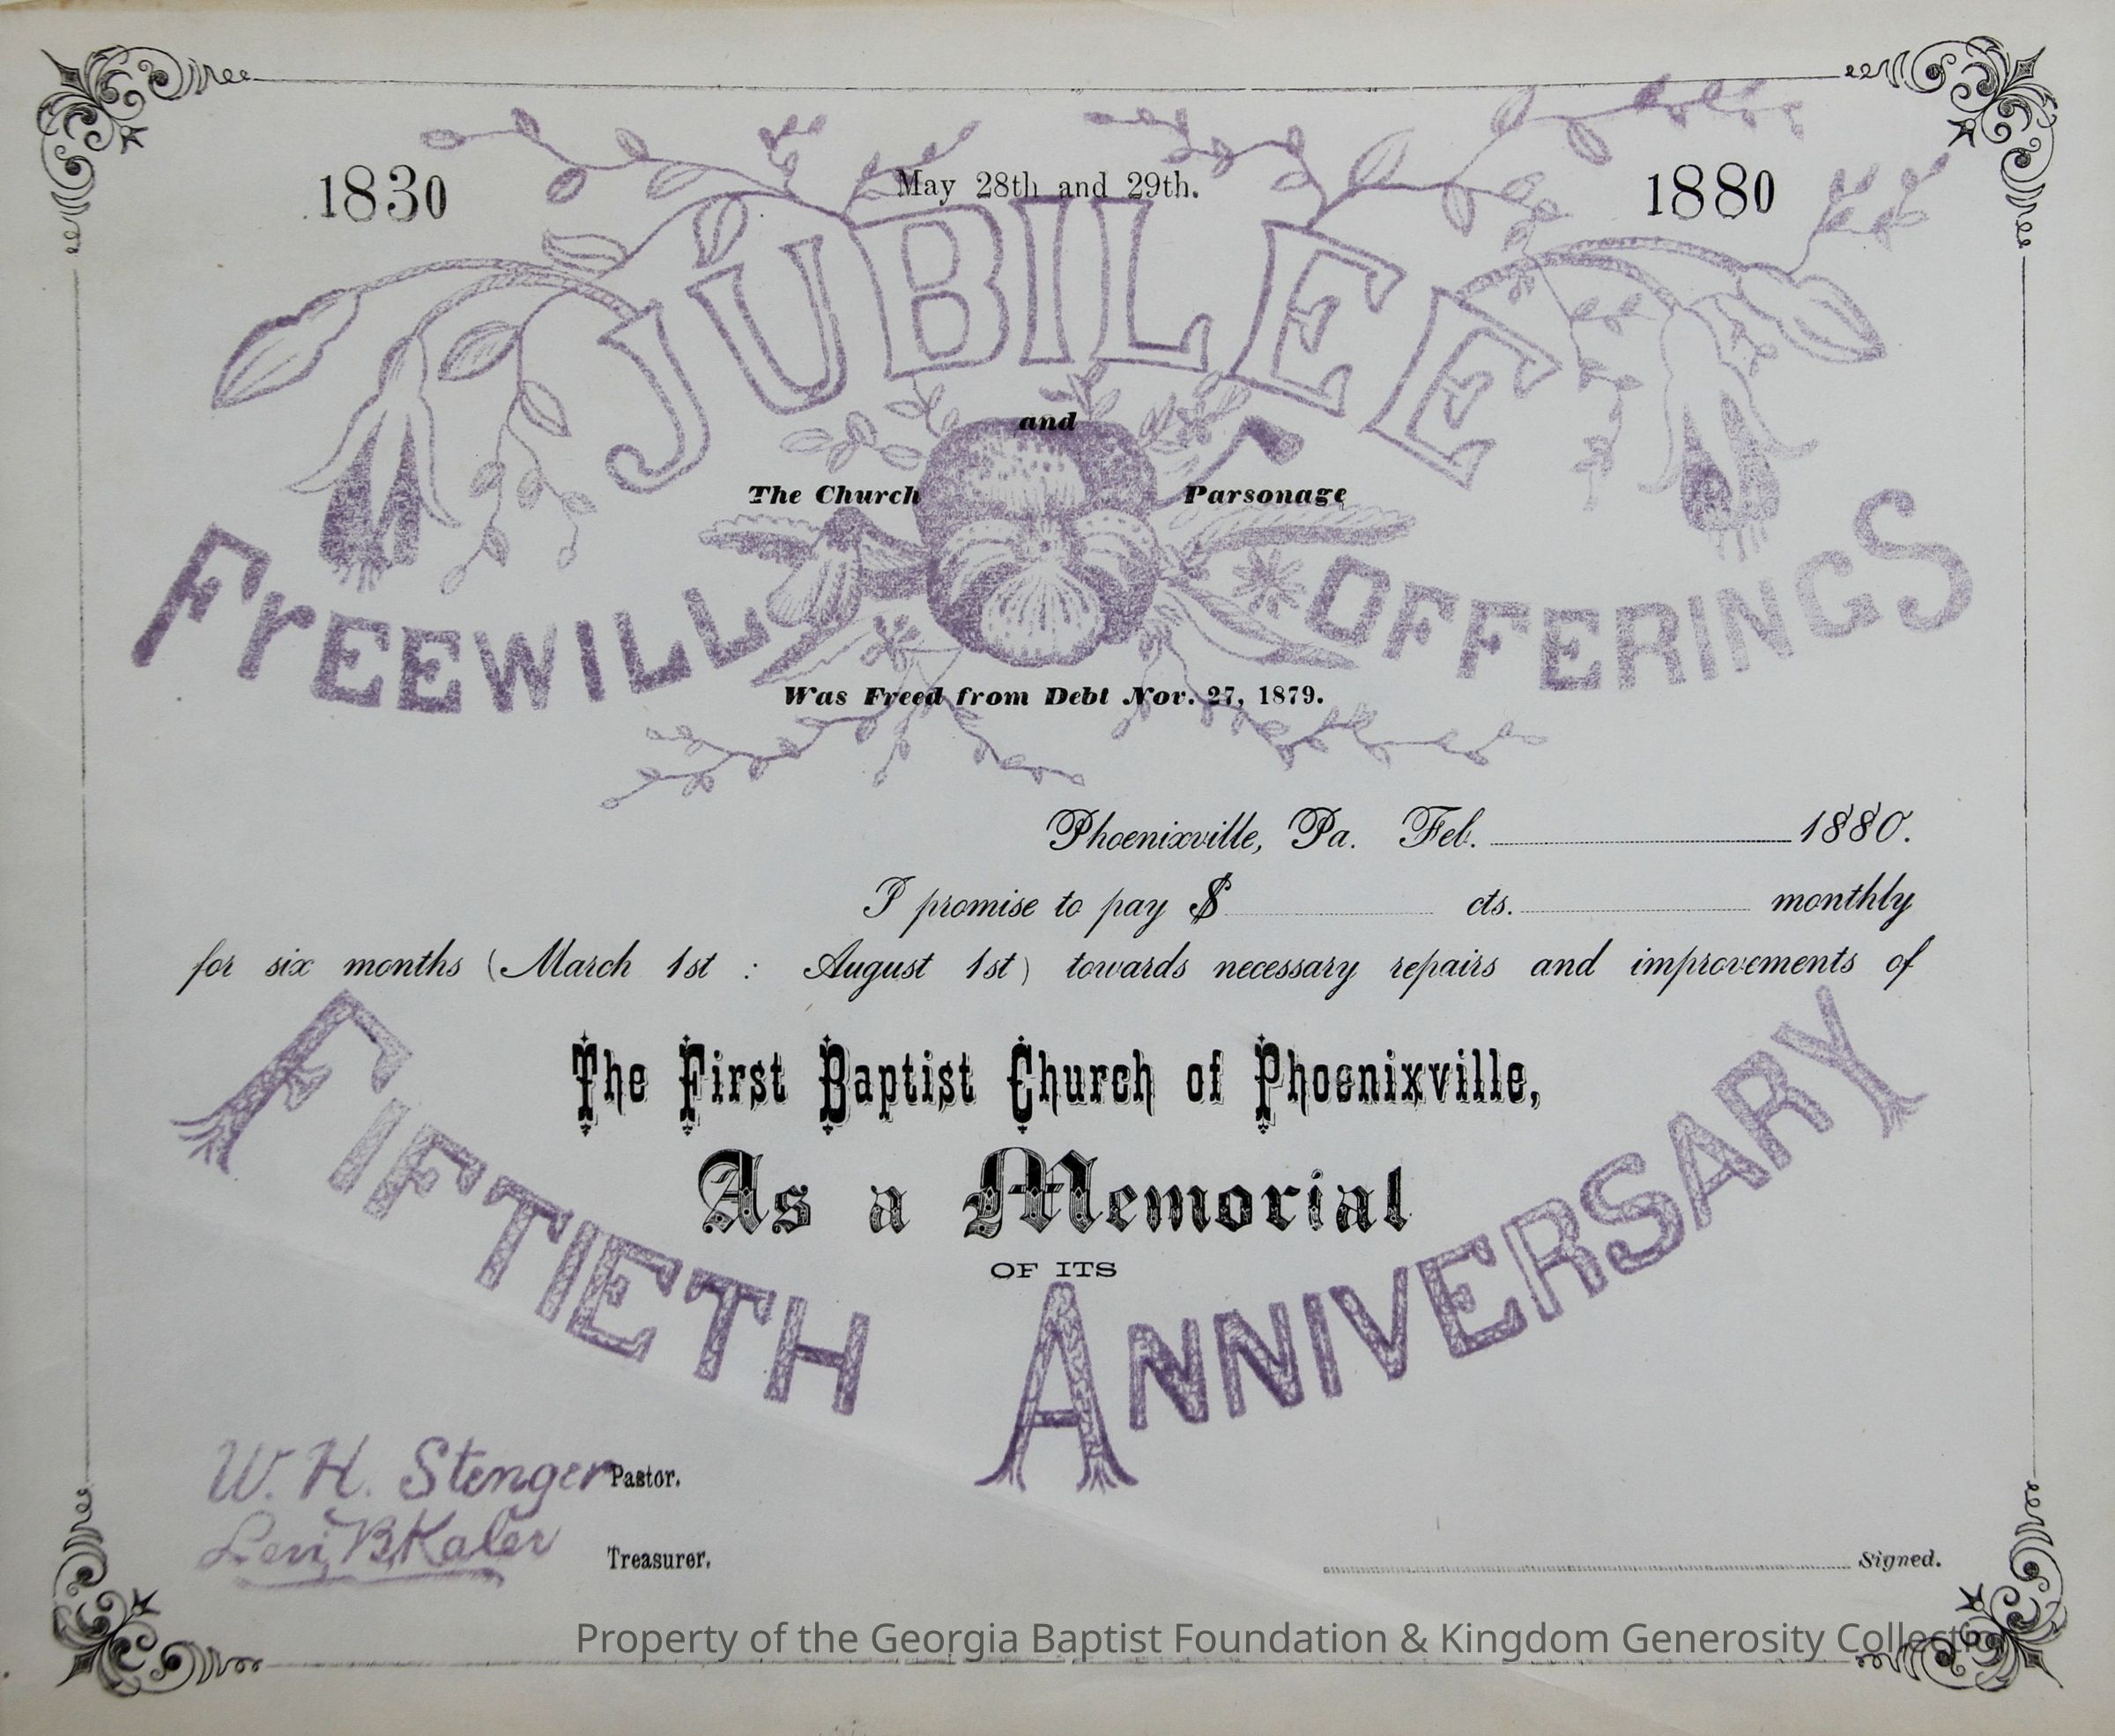 1830 May 28th and 29th. 1880
JUBILEE
and
The Church Parsonage
FREEWILL OFFERINGS
Was Freed from Debt Nov. 27, 1879.
Phoenixville, Pa. Feb. 1880.
I promise to pay $ cts. monthly
for six months (March 1st : August 1st) towards necessary repairs and improvements of
The First Baptist Church of Phoenixville,
As a Memorial
OF ITS
FIFTIETH ANNIVERSARY
W. H. Stenger Pastor.
Levi B Kaler Treasurer.
Signed.
Property of the Georgia Baptist Foundation & Kingdom Generosity Collect